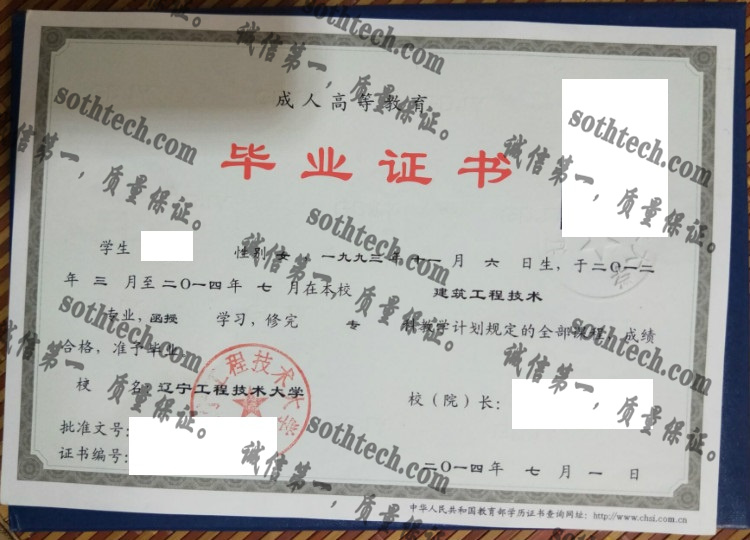 成人高等教育
毕业证书
学生 性别 女 一九九三年 十一 月 六 日生，于二〇一二
年 三 月至二〇一四年 七 月在本校 建筑工程技术
专业，函授 学习，修完 专 科教学计划规定的全部课程，成绩
合格，准予毕业
校 名：辽宁工程技术大学
校（院）长：
批准文号：
证书编号：
二〇一四年 七 月 一 日
中华人民共和国教育部学历证书查询网址：http://www.chsi.com.cn
工程技术大
sothtech.com
诚信第一，质量保证。
sothtech.com
诚信第一，质量保证。
sothtech.com
诚信第一，质量保证。
sothtech.com
诚信第一，质量保证。
sothtech.com
诚信第一，质量保证。
sothtech.com
诚信第一，质量保证。
sothtech.com
诚信第一，质量保证。
sothtech.com
诚信第一，质量保证。